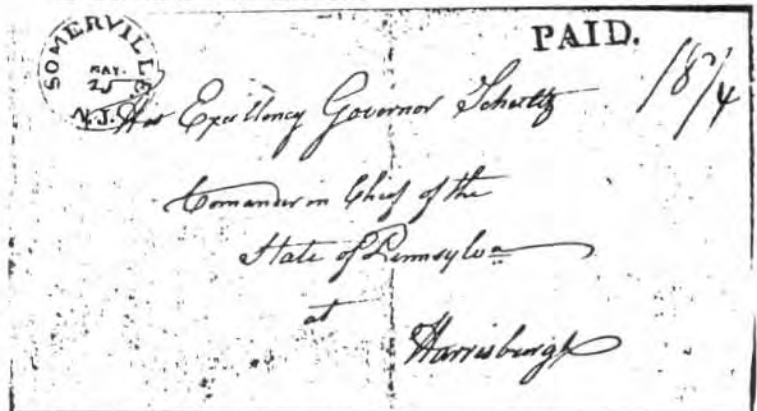 SOMERVILLE
MAY.
25
N.J.
PAID.
18 3/4
His Excellency Governor Schultz
Comander in Chief of the
State of Pennsylva
at
Harrisburgh